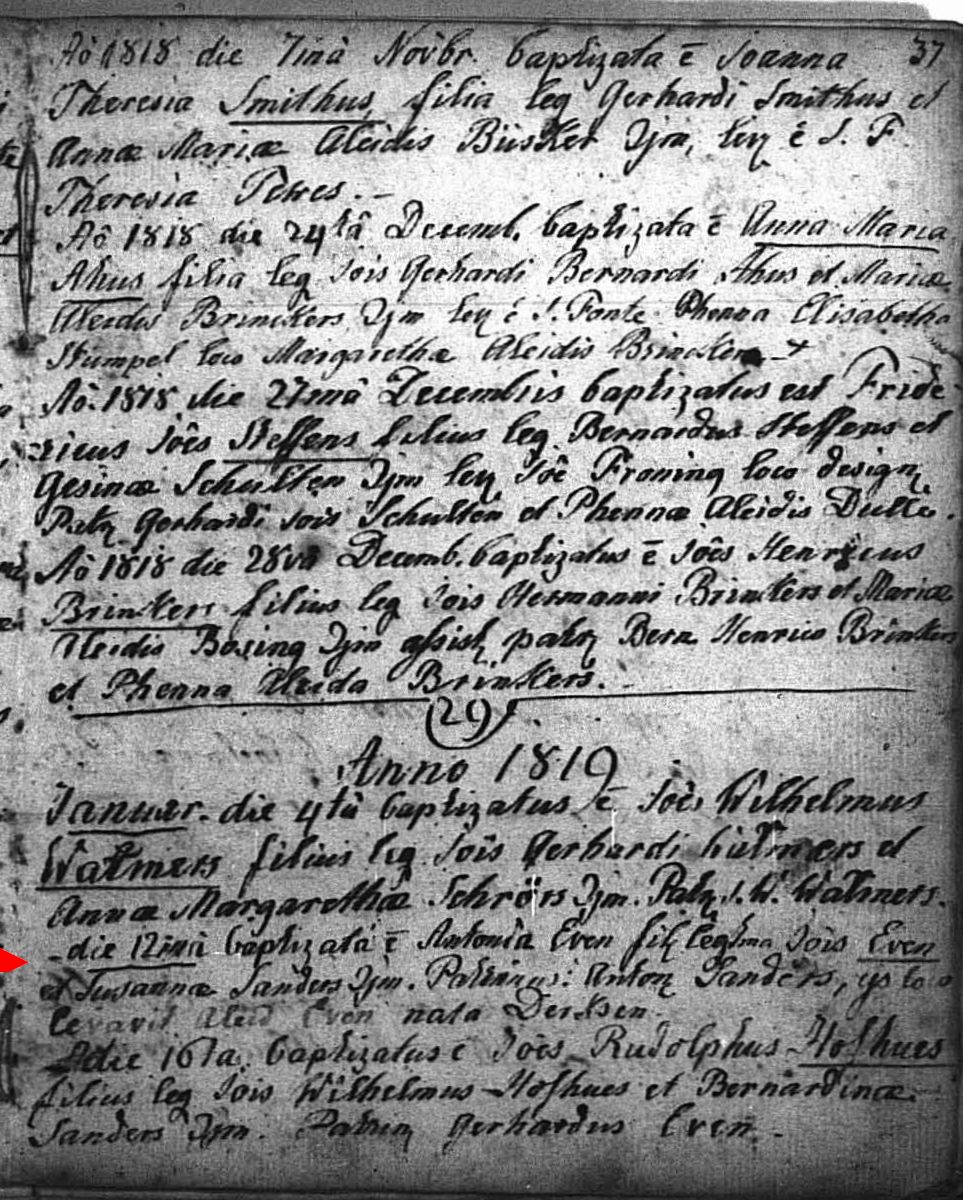 37
Aô 1818 die 7mâ Novbr. baptizata ē Joanna
Theresia Smithus, filia leg Gerhardi Smithus et
Annæ Mariæ Aleidis Büsker Zjm, lev ē S. F.
Theresia Petres.-
Aô 1818 die 24tâ Decemb. baptizata ē Anna Maria
Ahus filia leg Jois Gerhardi Bernardi Ahus et Mariæ
Aleidis Brinckers Zjm lev ē S. Fonte Phenna Elisabetha
Stümpel loco Margarethæ Aleidis Brinckers
Aô. 1818 die 27mâ Decembris baptizatus est Fride
ricus Joês Steffens filius leg Bernardus Steffens et
Gesinæ Schulten Zjm lev Joê Froning loco design
Patr Gerhardi Jois Schulten et Phennæ Aleidis
Aô 1818 die 28va Decemb. baptizatus ē Joês Henricus
Brinkers filius leg Jois Hermanni Brinkers et Mariæ
Aleidis Boxing Zjm assist patr Bern Henrico Brinkers
et Phenna Aleida Brinkers.
29
Anno 1819
Januar. die 4tâ baptizatus ē Joês Wilhelmus
Watmers filius leg Jois Gerhardi Watmers et
Annæ Margarethæ Schrörs Zjm. Patr J. W. Watmers.
- die 12mâ baptizata ē Antonia Even fil legtma Jois Even
et Susannæ Sanders Zjm. Patrinus: Anton Sanders, ejs loco
levavit Aleid Even nata Dercksen.
- die 16ta baptizatus ē Joês Rudolphus Hofhues
filius leg Jois Wilhelmus Hofhues et Bernardinæ
Sanders Zjm. Patrin Gerhardus Even.